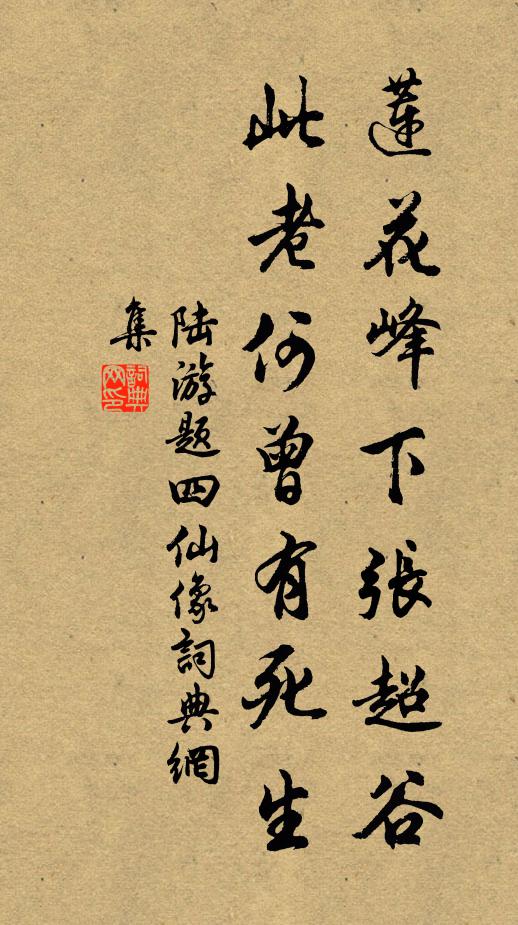 蓮花峰下張超谷
此老何曾有死生
陸游題四仙像詞典網
集
詞典網印